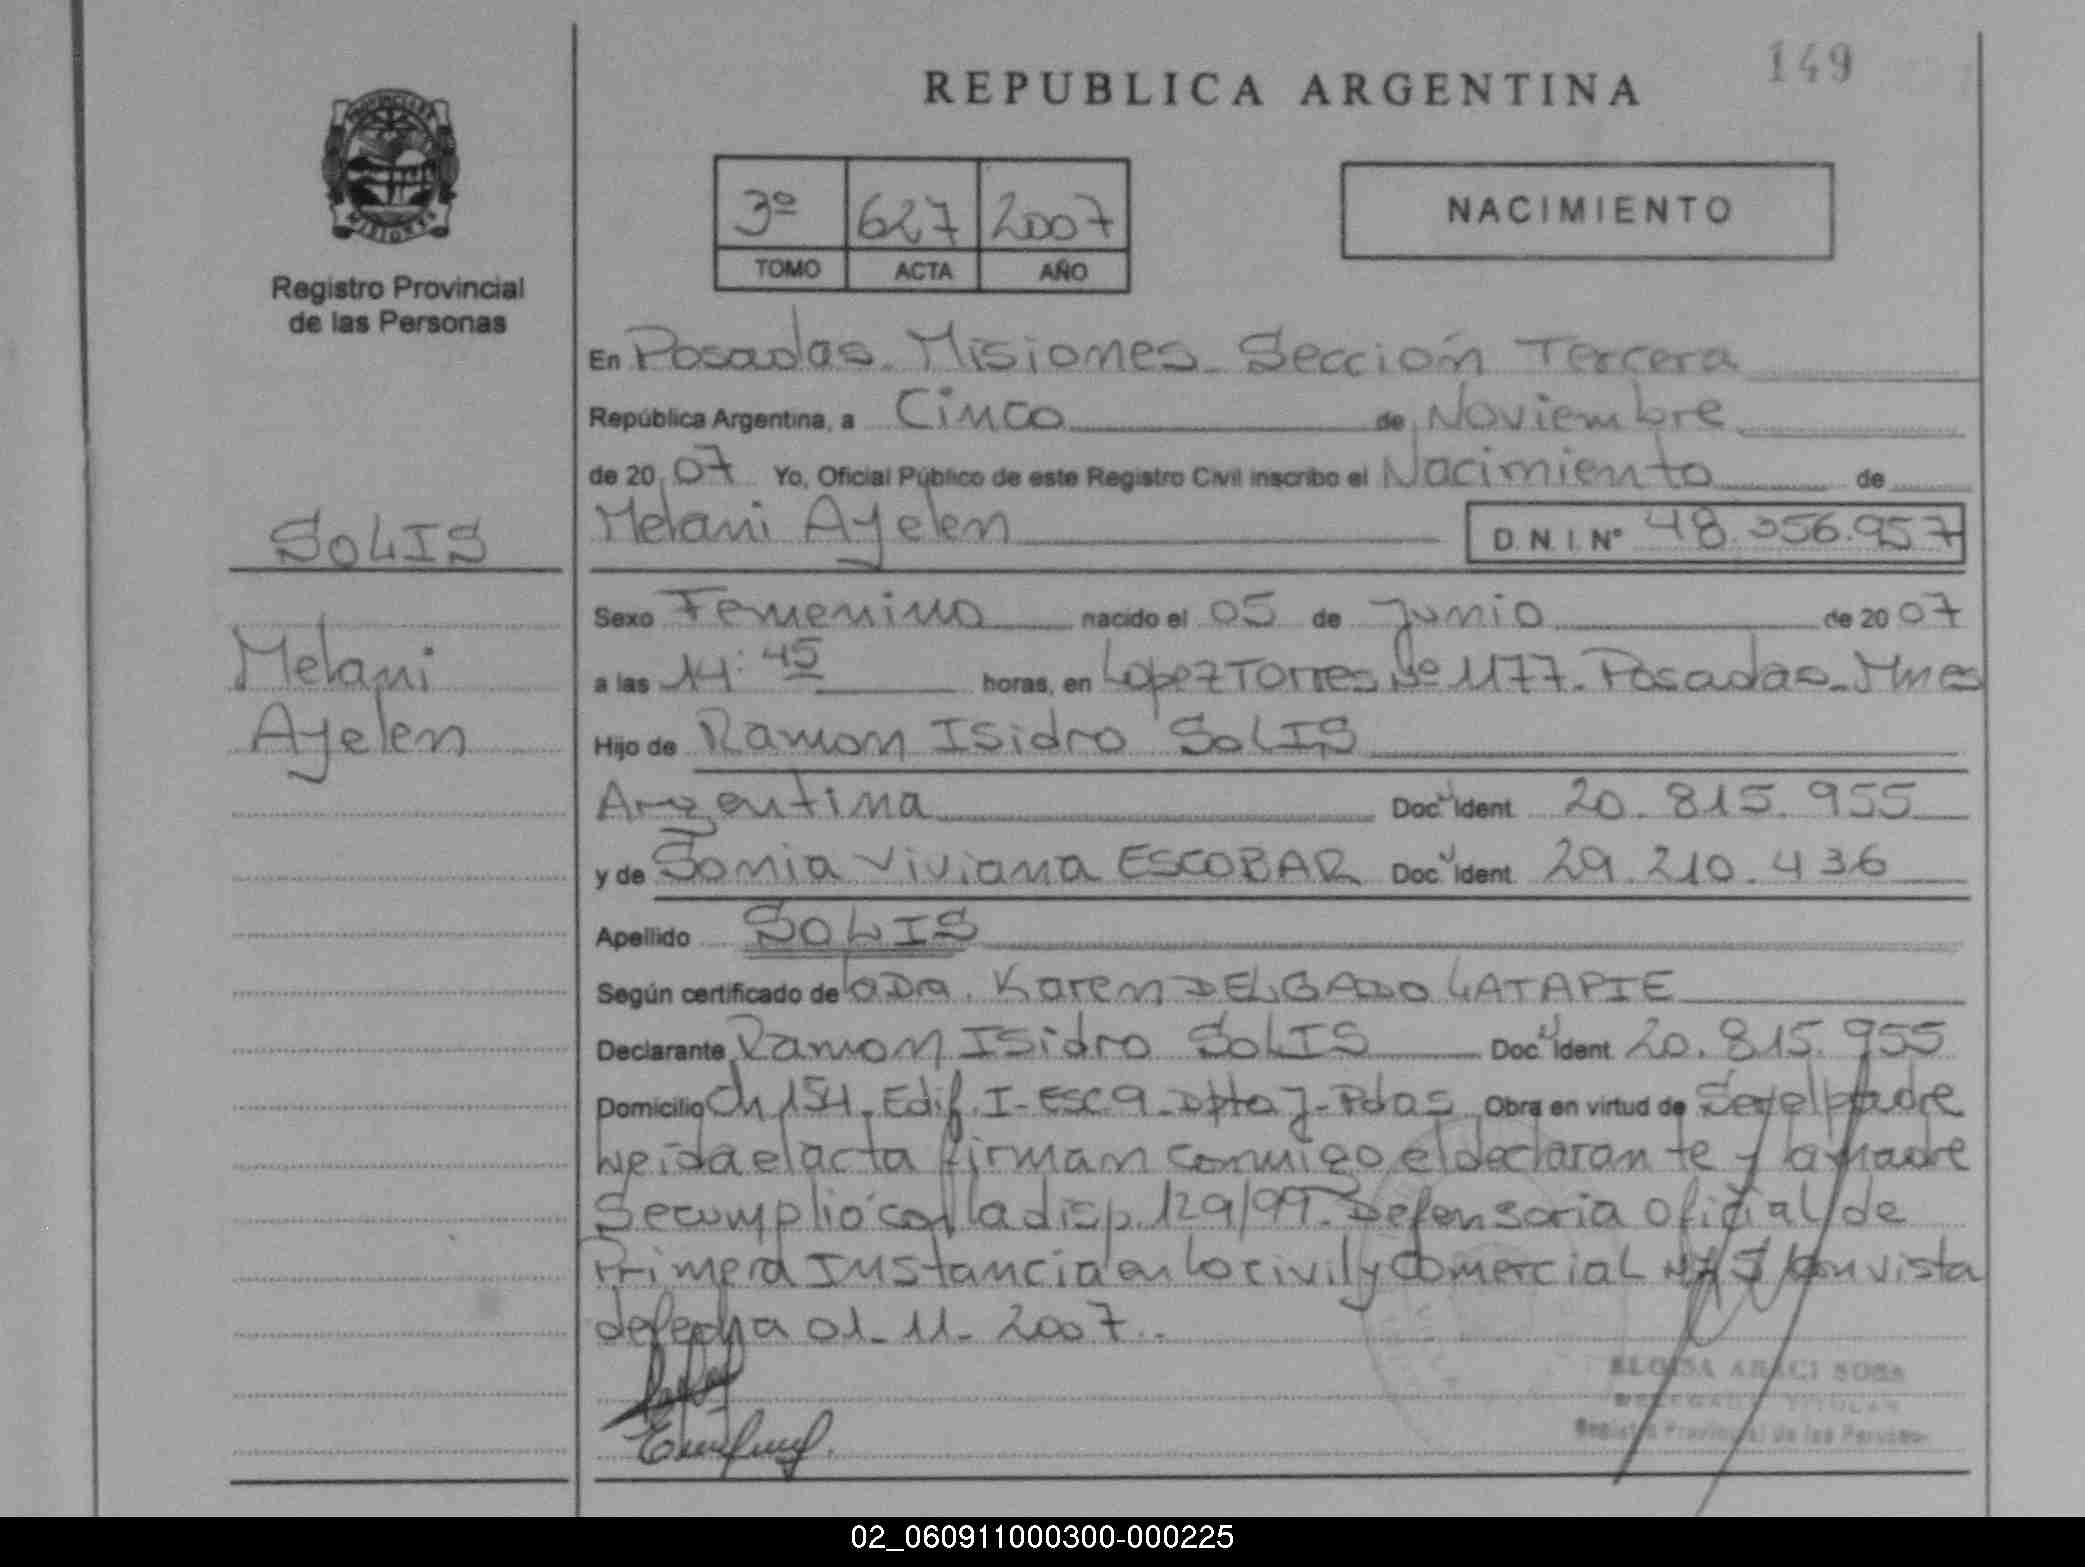 149
REPUBLICA ARGENTINA
PROVINCIA DE
MISIONES
Registro Provincial
de las Personas
3º 627 2007
TOMO ACTA AÑO
NACIMIENTO
En Posadas. Misiones. Sección Tercera
República Argentina, a Cinco de Noviembre
de 20 07 Yo, Oficial Público de este Registro Civil inscribo el Nacimiento de
SOLIS
Melani Ayelen D.N.I.Nº 48.356.957
Sexo Femenino nacido el 05 de Junio de 20 07
Melani
Ayelen
a las 14:45 horas, en Lopez Torres Nº 1177. Posadas-Mnes
Hijo de Ramon Isidro SOLIS
Argentina Doc. Ident 20.815.955
y de Sonia Viviana ESCOBAR Doc. Ident 29.210.436
Apellido SOLIS
Según certificado de la Dra. Karen DELGADO LATAPIE
Declarante Ramon Isidro SOLIS Doc. Ident 20.815.955
Domicilio Ch 154. Edif. I-Esc. 9-Dpto J-Pdas Obra en virtud de Ser el padre
Leida el acta firman conmigo el declarante y la madre
Se cumplió con la disp. 129/99. Defensoria Oficial de
Primera Instancia en lo civil y Comercial con vista
de fecha 01-11-2007.
ELOISA ARACI SOSA
DELEGADA TITULAR
Registro Provincial de las Personas
02_060911000300-000225